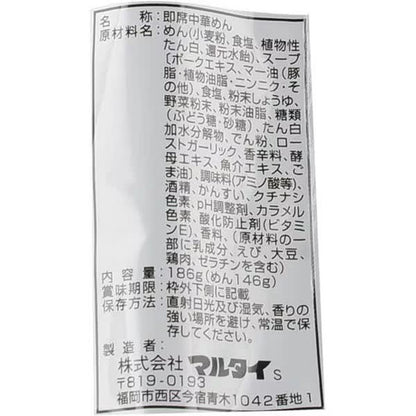 名　　称：即席中華めん
原材料名：めん(小麦粉、食塩、植物性
たん白、還元水飴)、スープ
[ポークエキス、マー油(豚
脂・植物油脂・ニンニク・そ
の他)、食塩、粉末しょうゆ、
野菜粉末、粉末油脂、糖類
(ぶどう糖・砂糖)、たん白
加水分解物、でん粉、ロー
ストガーリック、香辛料、酵
母エキス、魚介エキス、ご
ま油]、調味料(アミノ酸等)、
酒精、かんすい、クチナシ
色素、pH調整剤、カラメル
色素、酸化防止剤(ビタミ
ンE)、香料、(原材料の一
部に乳成分、えび、大豆、
鶏肉、ゼラチンを含む)
内 容 量：186g(めん146g)
賞味期限：枠外下側に記載
保存方法：直射日光及び湿気、香りの
強い場所を避け、常温で保
存してください。
製 造 者：
株式会社 マルタイ S
〒819-0193
福岡市西区今宿青木1042番地1